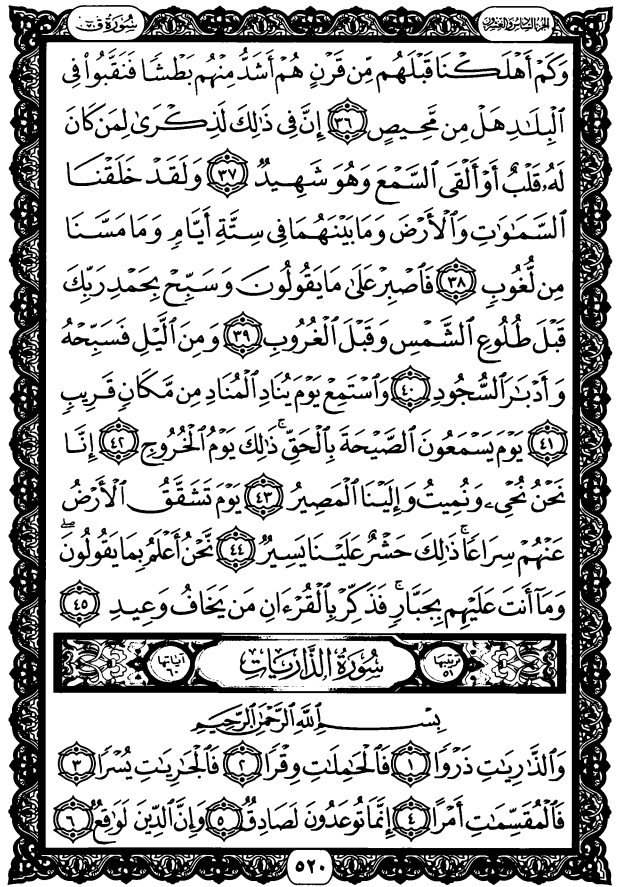 الجزء السادس والعشرون
سورة ق
وَكَمْ أَهْلَكْنَا قَبْلَهُم مِّن قَرْنٍ هُمْ أَشَدُّ مِنْهُم بَطْشًا فَنَقَّبُوا۟ فِى
ٱلْبِلَٰدِ هَلْ مِن مَّحِيصٍ ٣٦ إِنَّ فِى ذَٰلِكَ لَذِكْرَىٰ لِمَن كَانَ
لَهُۥ قَلْبٌ أَوْ أَلْقَى ٱلسَّمْعَ وَهُوَ شَهِيدٌ ٣٧ وَلَقَدْ خَلَقْنَا
ٱلسَّمَٰوَٰتِ وَٱلْأَرْضَ وَمَا بَيْنَهُمَا فِى سِتَّةِ أَيَّامٍ وَمَا مَسَّنَا
مِن لُّغُوبٍ ٣٨ فَٱصْبِرْ عَلَىٰ مَا يَقُولُونَ وَسَبِّحْ بِحَمْدِ رَبِّكَ
قَبْلَ طُلُوعِ ٱلشَّمْسِ وَقَبْلَ ٱلْغُرُوبِ ٣٩ وَمِنَ ٱلَّيْلِ فَسَبِّحْهُ
وَأَدْبَٰرَ ٱلسُّجُودِ ٤٠ وَٱسْتَمِعْ يَوْمَ يُنَادِ ٱلْمُنَادِ مِن مَّكَانٍ قَرِيبٍ
٤١ يَوْمَ يَسْمَعُونَ ٱلصَّيْحَةَ بِٱلْحَقِّ ۚ ذَٰلِكَ يَوْمُ ٱلْخُرُوجِ ٤٢ إِنَّا
نَحْنُ نُحْىِۦ وَنُمِيتُ وَإِلَيْنَا ٱلْمَصِيرُ ٤٣ يَوْمَ تَشَقَّقُ ٱلْأَرْضُ
عَنْهُمْ سِرَاعًا ۚ ذَٰلِكَ حَشْرٌ عَلَيْنَا يَسِيرٌ ٤٤ نَّحْنُ أَعْلَمُ بِمَا يَقُولُونَ ۖ
وَمَآ أَنتَ عَلَيْهِم بِجَبَّارٍ ۖ فَذَكِّرْ بِٱلْقُرْءَانِ مَن يَخَافُ وَعِيدِ ٤٥
ترتيبها ٥١ سورة الذاريات آياتها ٦٠
بِسْمِ ٱللَّهِ ٱلرَّحْمَٰنِ ٱلرَّحِيمِ
وَٱلذَّٰرِيَٰتِ ذَرْوًا ١ فَٱلْحَٰمِلَٰتِ وِقْرًا ٢ فَٱلْجَٰرِيَٰتِ يُسْرًا ٣
فَٱلْمُقَسِّمَٰتِ أَمْرًا ٤ إِنَّمَا تُوعَدُونَ لَصَادِقٌ ٥ وَإِنَّ ٱلدِّينَ لَوَٰقِعٌ ٦
٥٢٠